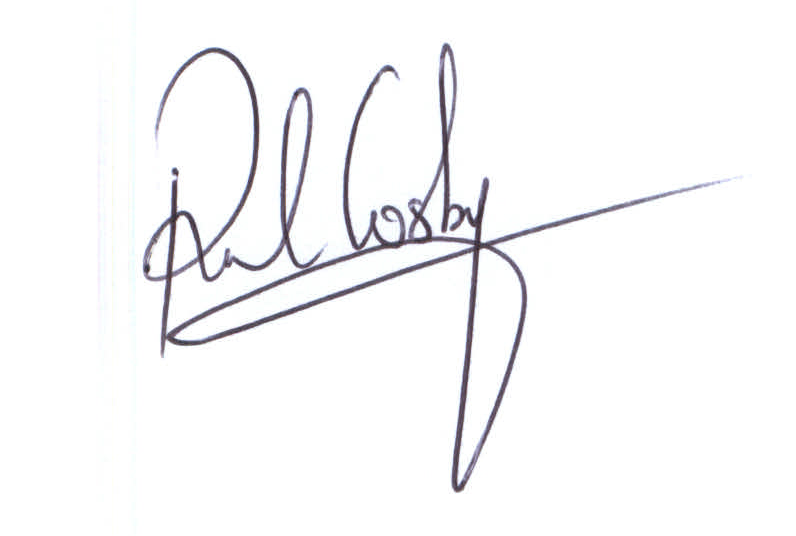 Paul Cosby